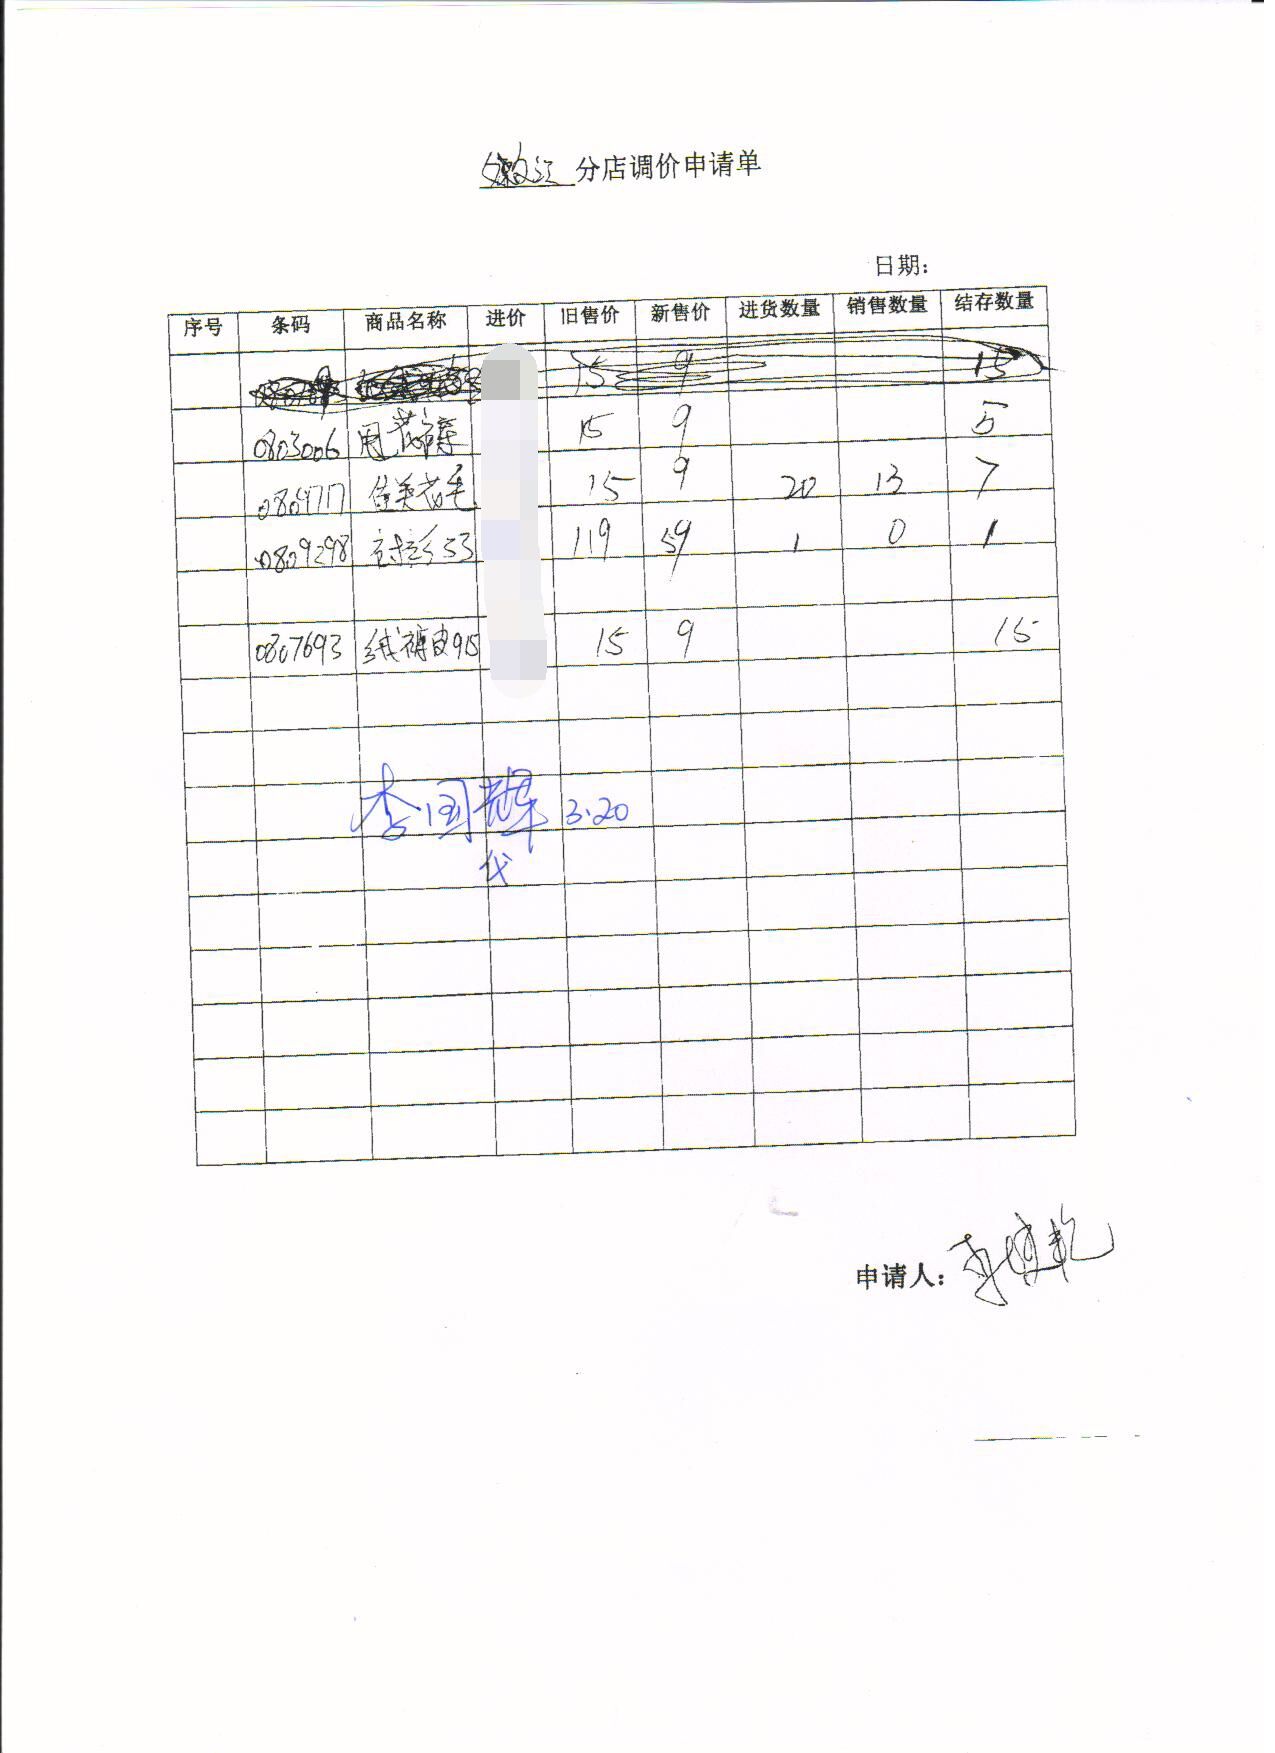 分店调价申请单
日期:
序号 条码 商品名称 进价 旧售价 新售价 进货数量 销售数量 结存数量
15 9 15
0803006 15 9 5
0809717 佳美 15 9 20 13 7
0809298 衬衫53 119 59 1 0 1
0807693 线裤皮915 15 9 15
李国辉 3.20
代
申请人: 李